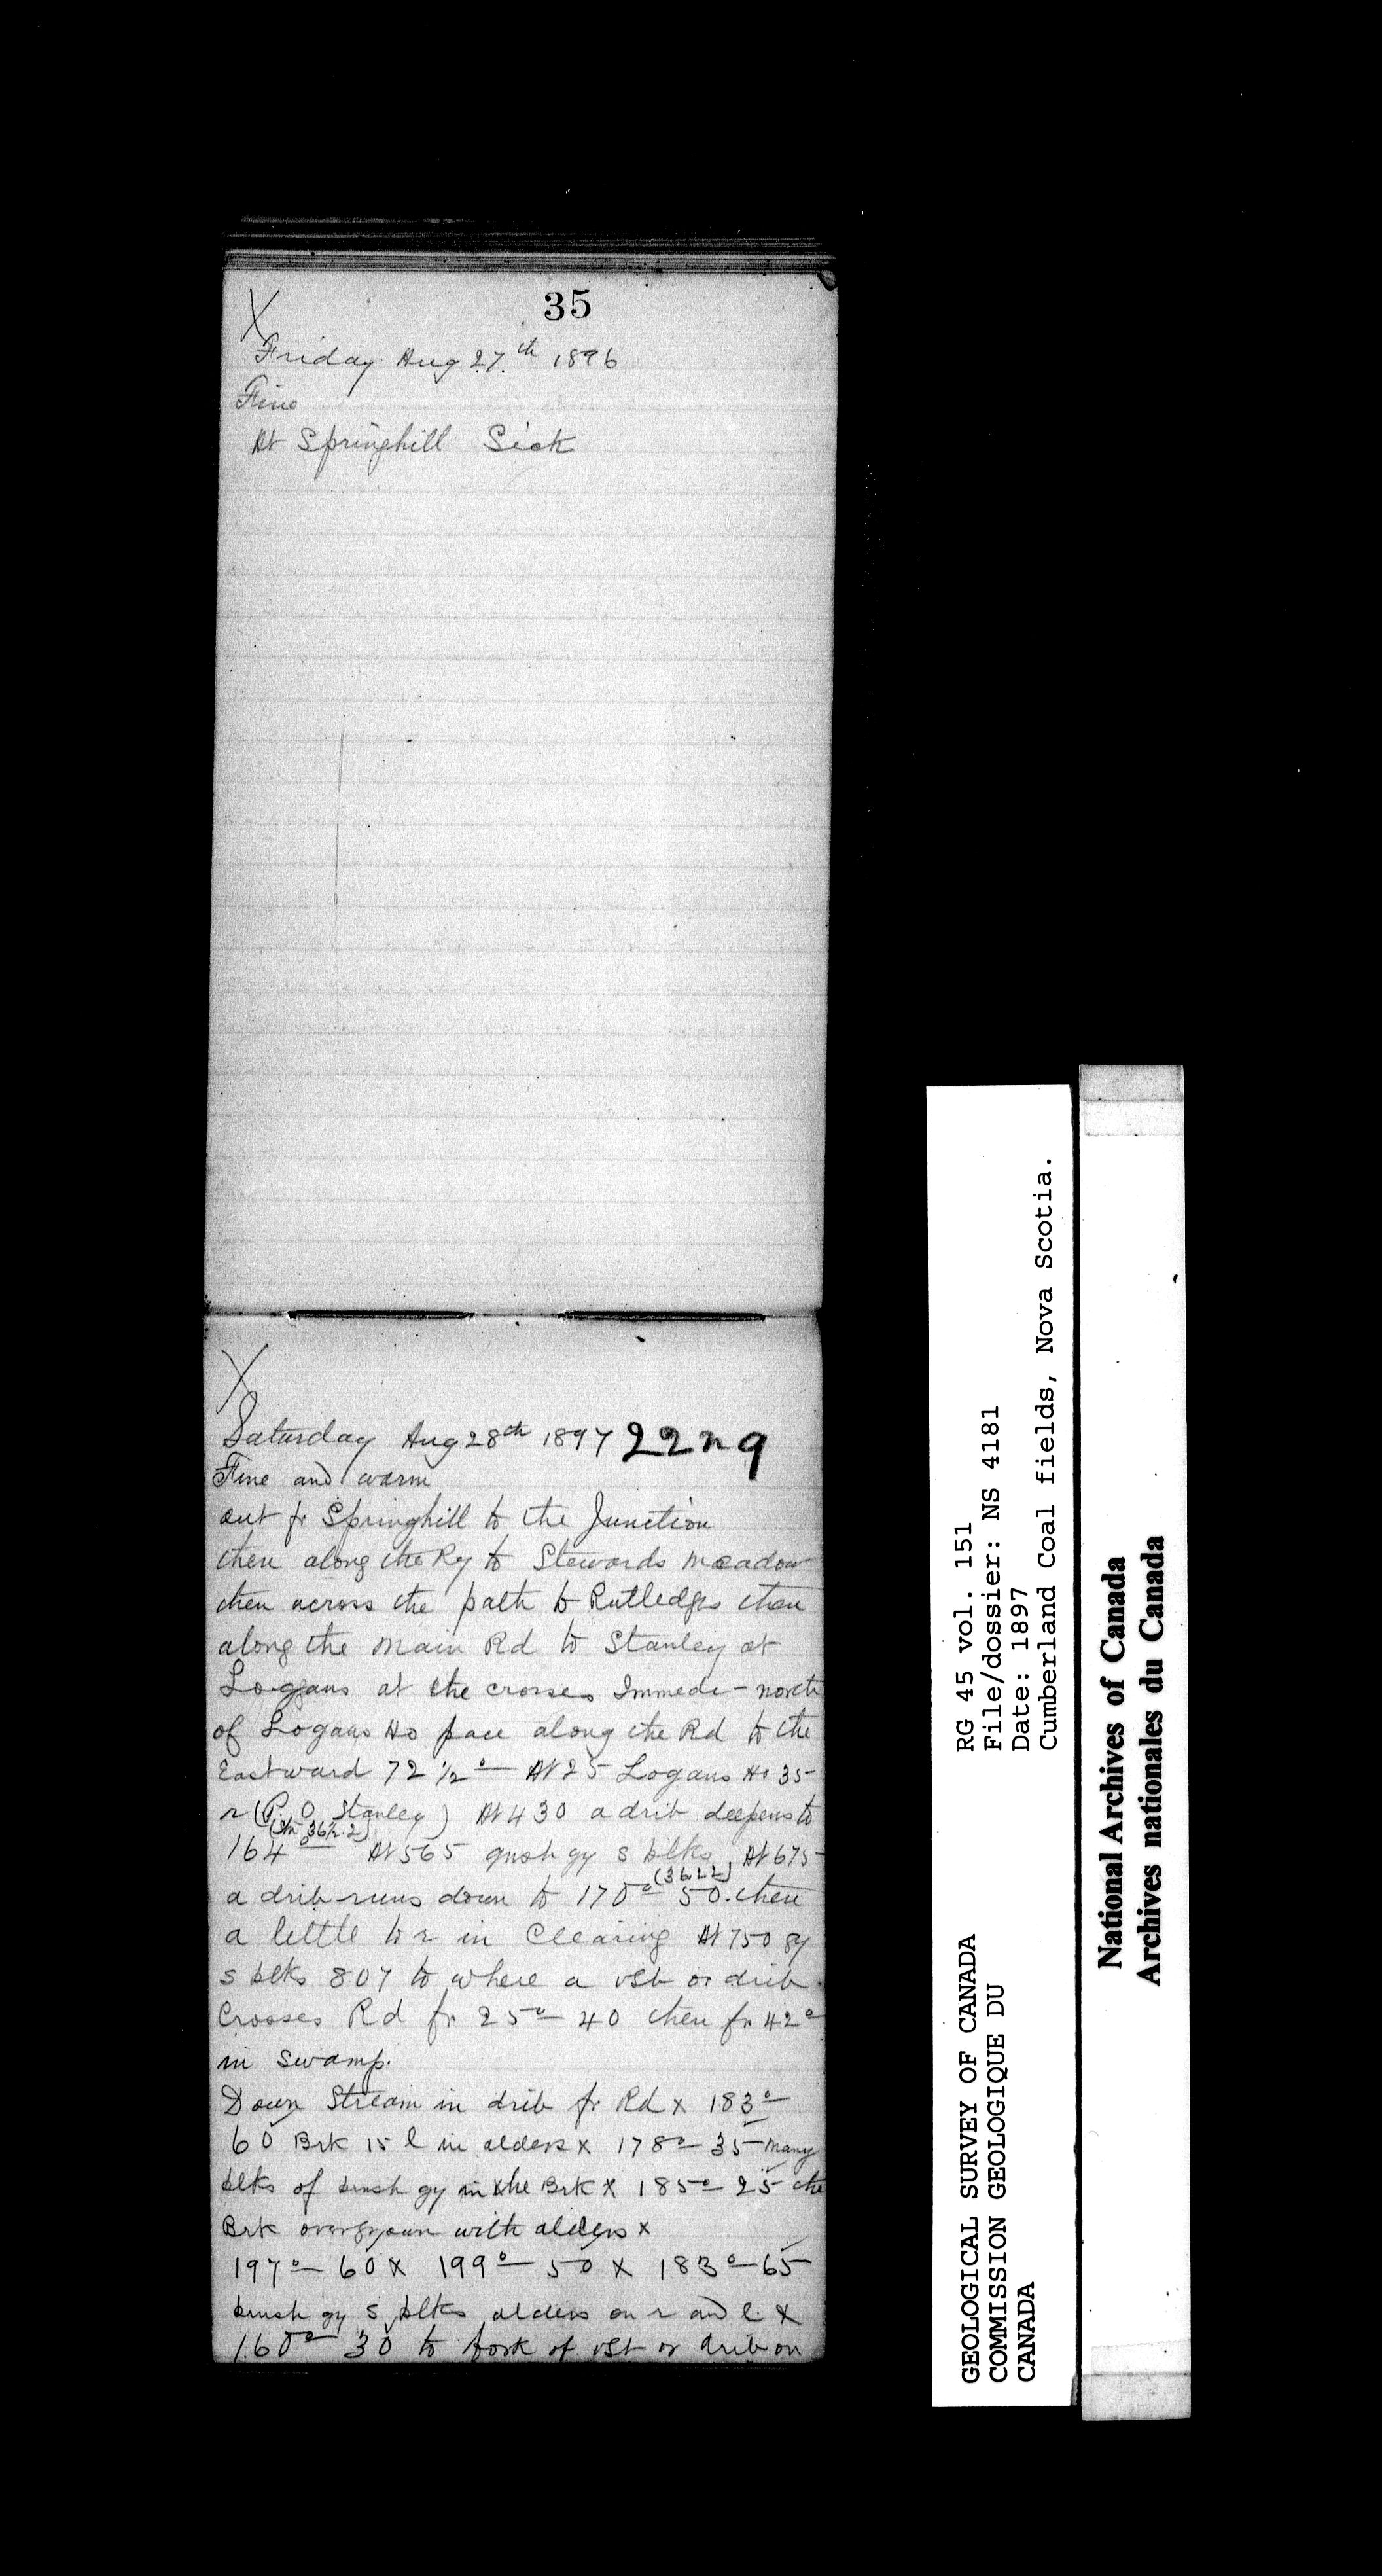 35
X
Friday Aug 27th 1896
Fine
At Springhill Sick
X
Saturday Aug 28th 1897 22n9
Fine and warm
out fr Springhill to the Junction
then along the Ry to Stewards meadow
then across the path to Rutledges then
along the main Rd to Stanley at
Logans at the crosses Immedi- north
of Logans Ho pace along the Rd to the
Eastward 72 1/2° At 25 Logans Ho 35
r (P. O Stanley) At 430 a drib deepens to
164° At 565 gy s blks At 675
(3622)
a drib runs down to 170° 50. then
a little to r in Clearing At 750 gy
s blks 807 to where a vst or drib
Crosses Rd fr 25° 40 then fr 42°
in swamp.
Down Stream in drib fr Rd x 183°
60 Brk 15 l in alders x 178° 35 many
blks of gy in the Brk x 185° 25 the
Brk overgrown with alders x
197° 60 x 199° 50 x 183° 65
gy s blks alders on r and l. x
160° 30 to fork of vst or drib on
GEOLOGICAL SURVEY OF CANADA
COMMISSION GEOLOGIQUE DU
CANADA
RG 45 vol. 151
File/dossier: NS 4181
Date: 1897
Cumberland Coal fields, Nova Scotia.
National Archives of Canada
Archives nationales du Canada